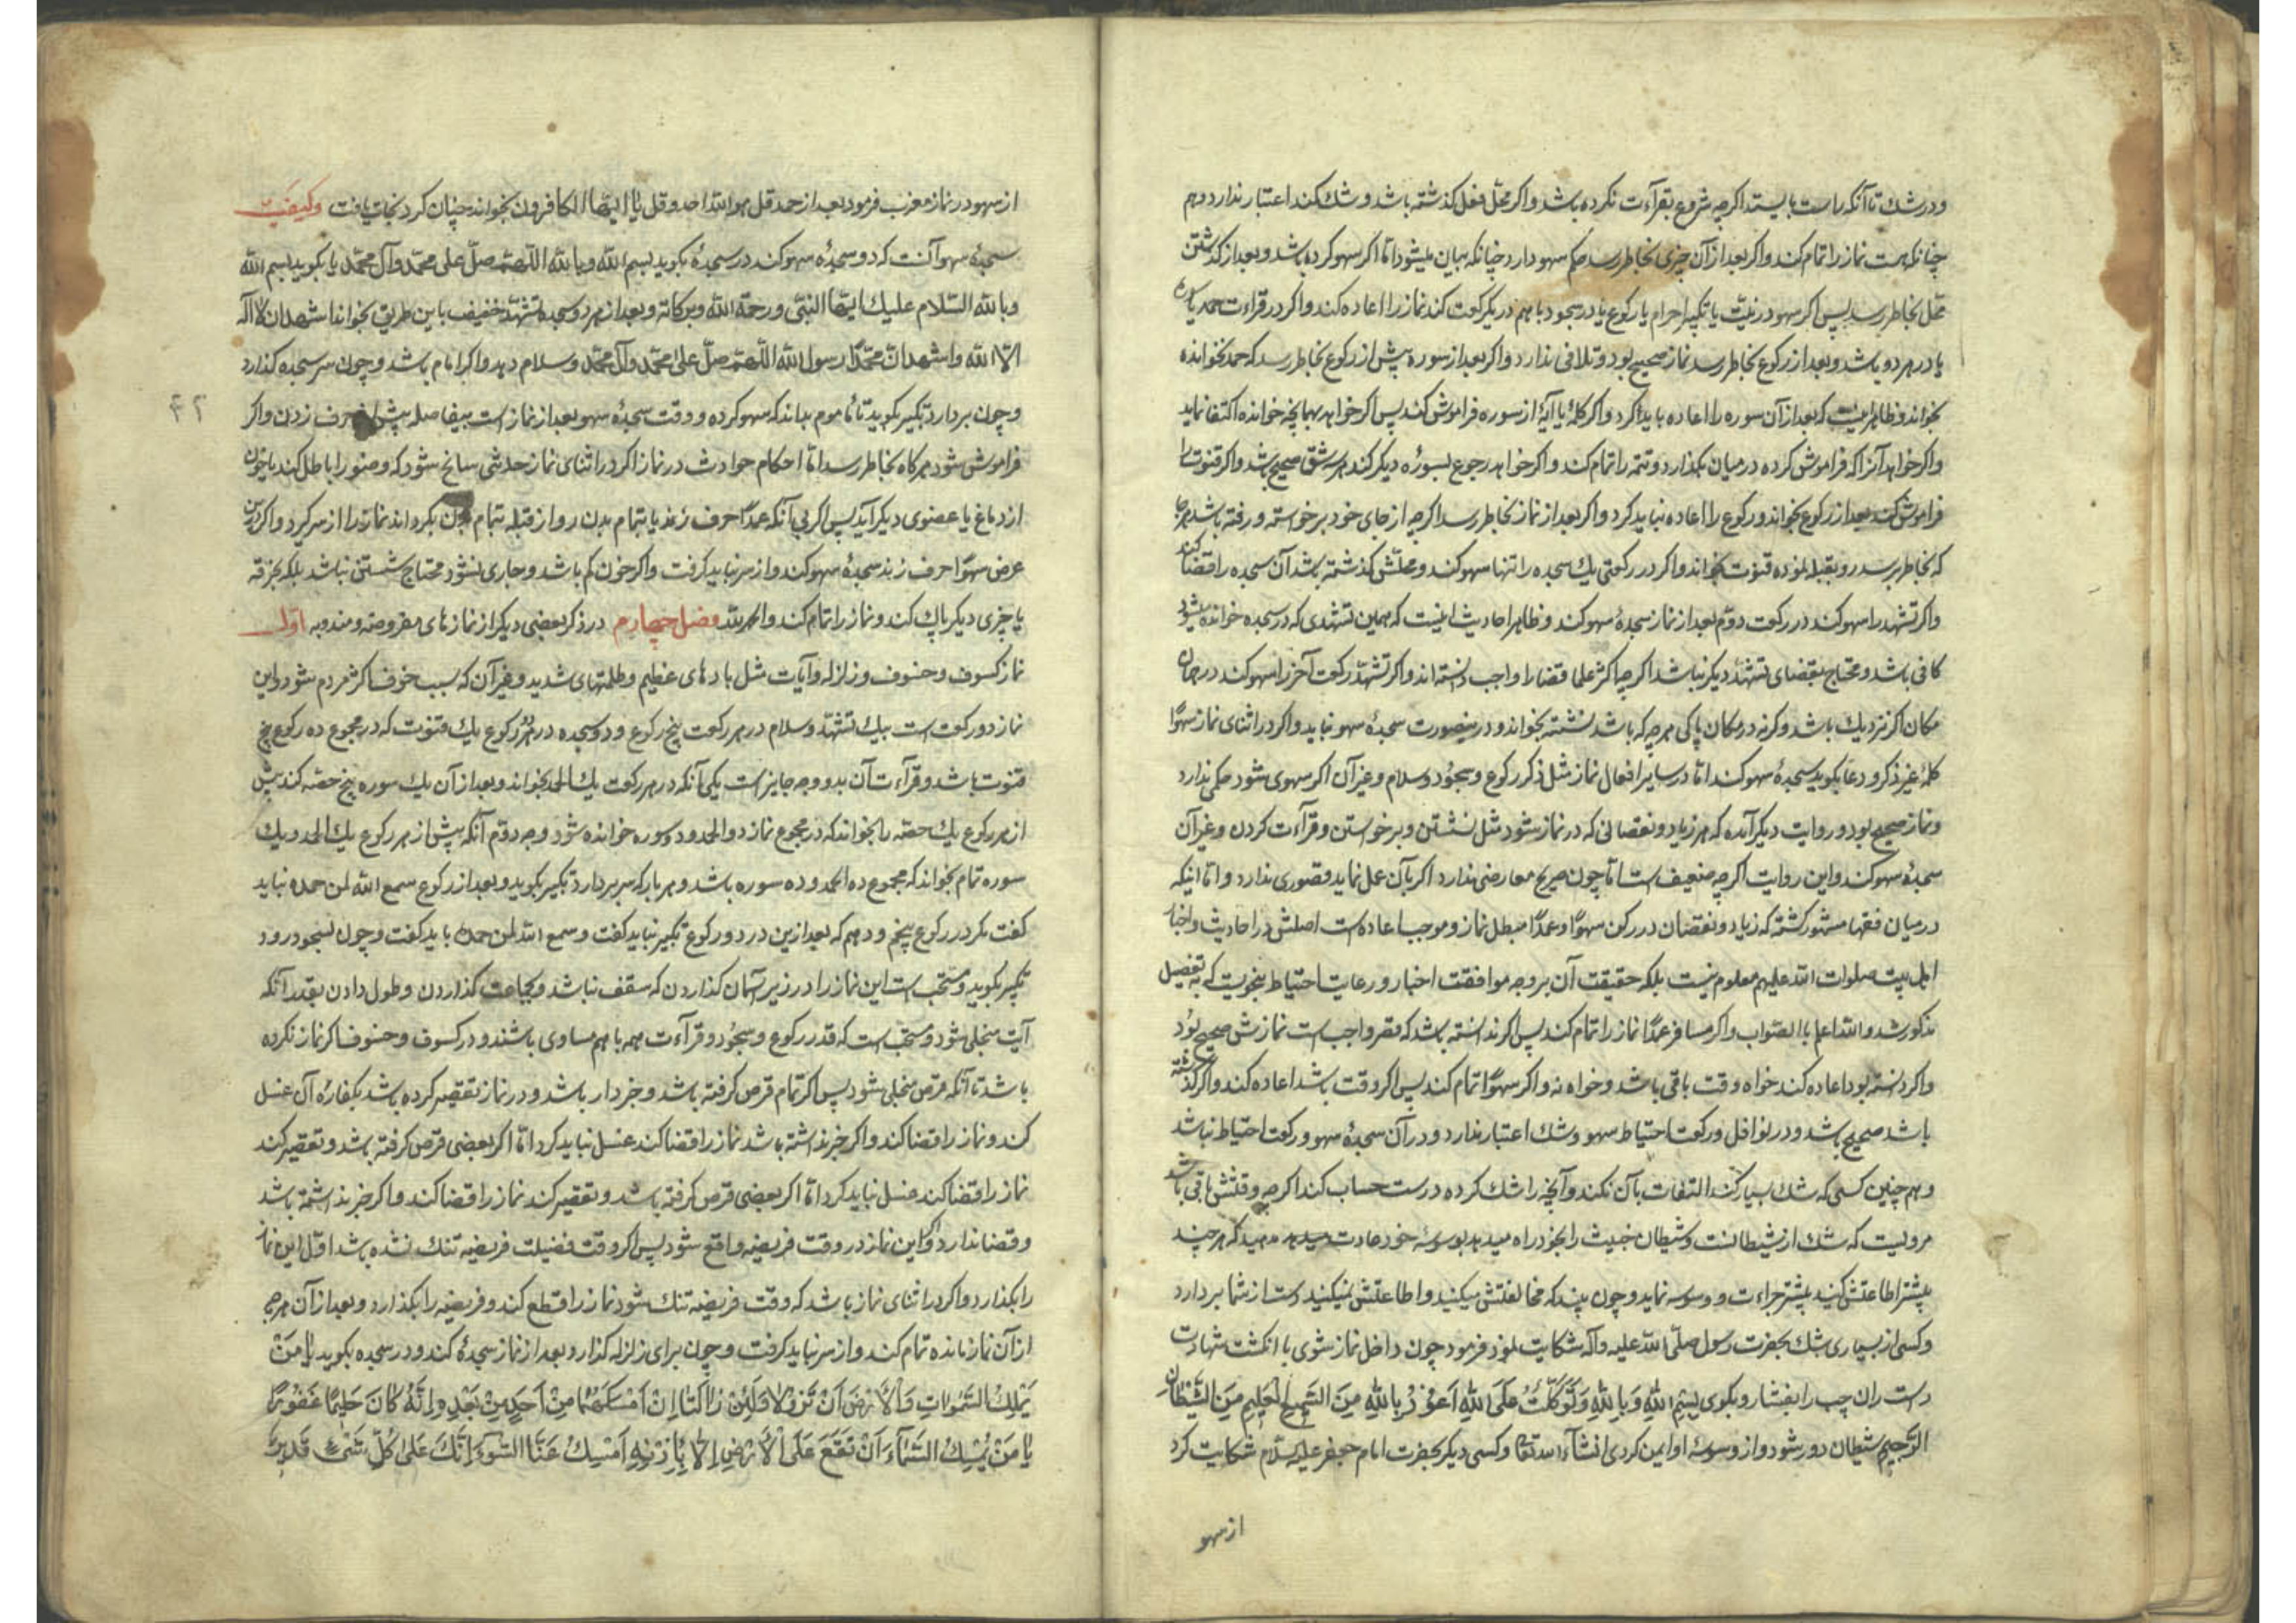 و در شک تا آنکه راست بایستد اگر چه شروع بقرآءت نکرده باشد و اگر محل فعل گذشته باشد و شک کند اعتبار ندارد و هم
چنانکه هست نماز را تمام کند و اگر بعد از آن چیزی بخاطر رسد حکم سهو دارد چنانکه بیان میشود اما اگر سهو کرده باشد و بعد از گذشتن
محل بخاطر رسد پس اگر سهو در نیت یا تکبیر احرام یا رکوع یا در سجود با هم در یکرکعت کند نماز را اعاده کند و اگر در قراءت حمد یا سوره
یا در هر دو باشد و بعد از رکوع بخاطر رسد نماز صحیح بود و تلافی ندارد و اگر بعد از سوره پیش از رکوع بخاطر رسد که حمد نخوانده
بخواند و ظاهر اینست که بعد از آن سوره را اعاده باید کرد و اگر کلمۀ یا آیۀ از سوره فراموش کند پس اگر خواهد بهمانچه خوانده اکتفا نماید
و اگر خواهد آنرا که فراموش کرده در میان بگذارد و تتمه را تمام کند و اگر خواهد رجوع بسورۀ دیگر کند هر سه شق صحیح باشد و اگر قنوت را
فراموش کند بعد از رکوع بخواند و رکوع را اعاده نباید کرد و اگر بعد از نماز بخاطر رسد اگر چه از جای خود برخواسته و رفته باشد هر جا
که بخاطر رسد رو بقبله نموده قنوت بخواند و اگر در رکعتی یک سجده را تنها سهو کند و محلش گذشته باشد آن سجده را قضا کند
و اگر تشهد را سهو کند در رکعت دوم بعد از نماز سجدۀ سهو کند و ظاهر احادیث اینست که همین تشهدی که در سجده خوانده میشود
کافی باشد و محتاج بقضای تشهد دیگر نباشد اگر چه اکثر علما قضا را واجب دانسته اند و اگر تشهد رکعت آخر را سهو کند در همان
مکان اگر نزدیک باشد و گرنه در مکان پاکی هر چه که باشد نشسته بخواند و درینصورت سجدۀ سهو نباید و اگر در اثنای نماز سهوًا
کلمۀ غیر ذکر و دعا بگوید سجدۀ سهو کند اما در سایر افعال نماز مثل ذکر رکوع و سجود و سلام و غیر آن اگر سهوی شود حکمی ندارد
و نماز صحیح بود و روایت دیگر آمده که هر زیاد و نقصانی که در نماز شود مثل نشستن و برخواستن و قرآءت کردن و غیر آن
سجدۀ سهو کند و این روایت اگر چه ضعیف است اما چون صریح معارضی ندارد اگر بآن عمل نماید قصوری ندارد و اما اینکه
در میان فقها مشهور گشته که زیاد و نقصان در رکن سهوًا و عمدًا مبطل نماز و موجب اعاده است اصلش در احادیث و اخبار
اهل بیت صلوات الله علیهم معلوم نیست بلکه حقیقت آن بر وجه موافقت اخبار و رعایت احتیاط بنحویست که بتفصیل
مذکور شد و الله اعلم بالصواب و اگر مسافر عمدًا نماز را تمام کند پس اگر ندانسته باشد که قصر واجب است نمازش صحیح بود
و اگر دانسته بود اعاده کند خواه وقت باقی باشد و خواه نه و اگر سهوًا تمام کند پس اگر وقت باشد اعاده کند و اگر گذشته
باشد صحیح باشد و در نوافل و رکعت احتیاط سهو و شک اعتبار ندارد و در آن سجدۀ سهو و رکعت احتیاط نباشد
و هم چنین کسی که شک بسیار کند التفات بآن نکند و آنچه را شک کرده درست حساب کند اگر چه وقتش باقی باشد
مرویست که شک از شیطانست و شیطان خبیث را بخود راه میدهید بوسوسه خود عادت میدهید که هر چند
بیشتر اطاعتش کنید بیشتر جراءت و وسوسه نماید و چون بیند که مخالفتش میکنید و اطاعتش نمیکنید دست از شما بردارد
و کسی از بسیاری شک بحضرت رسول صلی الله علیه و آله شکایت نمود فرمود چون داخل نماز شوی با انگشت شهادت
دست ران چپ را بفشار و بگوی بِسْمِ اللهِ وَ بِاللهِ وَ تَوَكَّلْتُ عَلَى اللهِ اَعُوْذُ بِاللهِ السَّمِیعِ الْعَلِیمِ مِنَ الشَّیْطَانِ
الرَّجِیمِ شیطان دور شود و از وسوسۀ او ایمن گردی انشآء الله تعالی و کسی دیگر بحضرت امام جعفر علیه السلام شکایت کرد
از سهو
از سهو در نماز مغرب فرمود بعد از حمد قل هو الله احد و قل یا ایها الکافرون بخواند چنان کرد نجات یافت و کیفیت
سجدۀ سهو آنست که دو سجدۀ سهو کند در سجدۀ بگوید بسم الله و بالله اللهم صل علی محمد و آل محمد یا بگوید بسم الله
و بالله السلام علیک ایها النبی و رحمة الله و برکاته و بعد از هر دو سجده تشهد خفیف باین طریق بخواند اشهد ان لا اله
الا الله و اشهد ان محمدًا رسول الله اللهم صل علی محمد و آل محمد و سلام دهد و اگر امام باشد و چون سر سجده گذارد
و چون بردارد تکبیر بگوید تا مأموم بداند که سهو کرده و وقت سجدۀ سهو بعد از نماز است بیفاصله پیش از حرف زدن و اگر
فراموش شود هر گاه بخاطر رسد اما احکام حوادث در نماز اگر در اثنای نماز حدثی سانح شود که وضو را باطل کند یا خون
از دماغ یا عضوی دیگر آید پس اگر بی آنکه عمدًا حرف زند یا بتمام بدن رو از قبله بتمام بدن بگرداند نماز را از سر گیرد و اگر درین
عرض سهوًا حرف زند سجدۀ سهو کند و از سر نباید گرفت و اگر خون کم باشد و جاری نشود محتاج شستن نباشد بلکه بخرقه
یا چیزی دیگر پاک کند و نماز را تمام کند و الحمد لله فصل چهارم در ذکر بعضی دیگر از نمازهای مفروضه و مندوبه اول
نماز کسوف و خسوف و زلزله و آیات مثل بادهای عظیم و ظلمتهای شدید و غیر آن که سبب خوف اکثر مردم شود و این
نماز دو رکعت است بیک تشهد و سلام در هر رکعت پنج رکوع و دو سجده در هر دو رکوع یک قنوت که در مجموع ده رکوع پنج
قنوت باشد و قرآءت آن بدو وجه جایز است یکی آنکه در هر رکعت یک الحمد بخواند و بعد از آن یک سوره پنج حصه کند پیش
از هر رکوع یک حصه را بخواند که در مجموع نماز دو الحمد و دو سوره خوانده شود وجه دوم آنکه پیش از هر رکوع یک الحمد و یک
سوره تمام بخواند که مجموع ده الحمد و ده سوره باشد و هر بار که سر بردارد تکبیر بگوید و بعد از رکوع سمع الله لمن حمده نباید
گفت مگر در رکوع پنجم و دهم که بعد ازین در دو رکوع تکبیر نباید گفت و سمع الله لمن حمده باید گفت و چون بسجود رود
تکبیر بگوید و مستحب است این نماز را در زیر آسمان گذاردن که سقف نباشد و بجماعت گذاردن و طول دادن بقدر آنکه
آیت منجلی شود و مستحب است که قدر رکوع و سجود و قرآءت همه با هم مساوی باشند و در کسوف و خسوف اگر نماز نکرده
باشد تا آنکه قرص منجلی شود پس اگر تمام قرص گرفته باشد و خبردار باشد و در نماز تقصیر کرده باشد بکفارۀ آن غسل
کند و نماز را قضا کند و اگر خبر نداشته باشد نماز را قضا کند غسل نباید کرد اما اگر بعضی قرص گرفته باشد و تقصیر کند
نماز را قضا کند غسل نباید کرد اما اگر بعضی قرص گرفته باشد و تقصیر کند نماز را قضا کند و اگر خبر نداشته باشد
و قضا ندارد و اگر این نماز در وقت فریضه واقع شود پس اگر وقت فضیلت فریضه تنک نشده باشد اول این نماز
را بگذارد و اگر در اثنای نماز باشد که وقت فریضه تنک شود نماز را قطع کند و فریضه را بگذارد و بعد از آن هر چه
از آن نماز مانده تمام کند و از سر نباید گرفت و چون برای زلزله گذارد بعد از نماز سجدۀ کند و در سجده بگوید یَا مَنْ
یُمْسِكُ السَّمٰوَاتِ وَ الْاَرْضَ اَنْ تَزُولَا وَ لَئِنْ زَالَتَا اِنْ اَمْسَكَهُمَا مِنْ اَحَدٍ مِنْ بَعْدِهِ اِنَّهُ كَانَ حَلِیمًا غَفُورًا
یَا مَنْ یُمْسِكُ السَّمَآءَ اَنْ تَقَعَ عَلَى الْاَرْضِ اِلَّا بِاِذْنِهِ اَمْسِكْ عَنَّا السُّوءَ اِنَّكَ عَلَى كُلِّ شَیْءٍ قَدِیرٌ